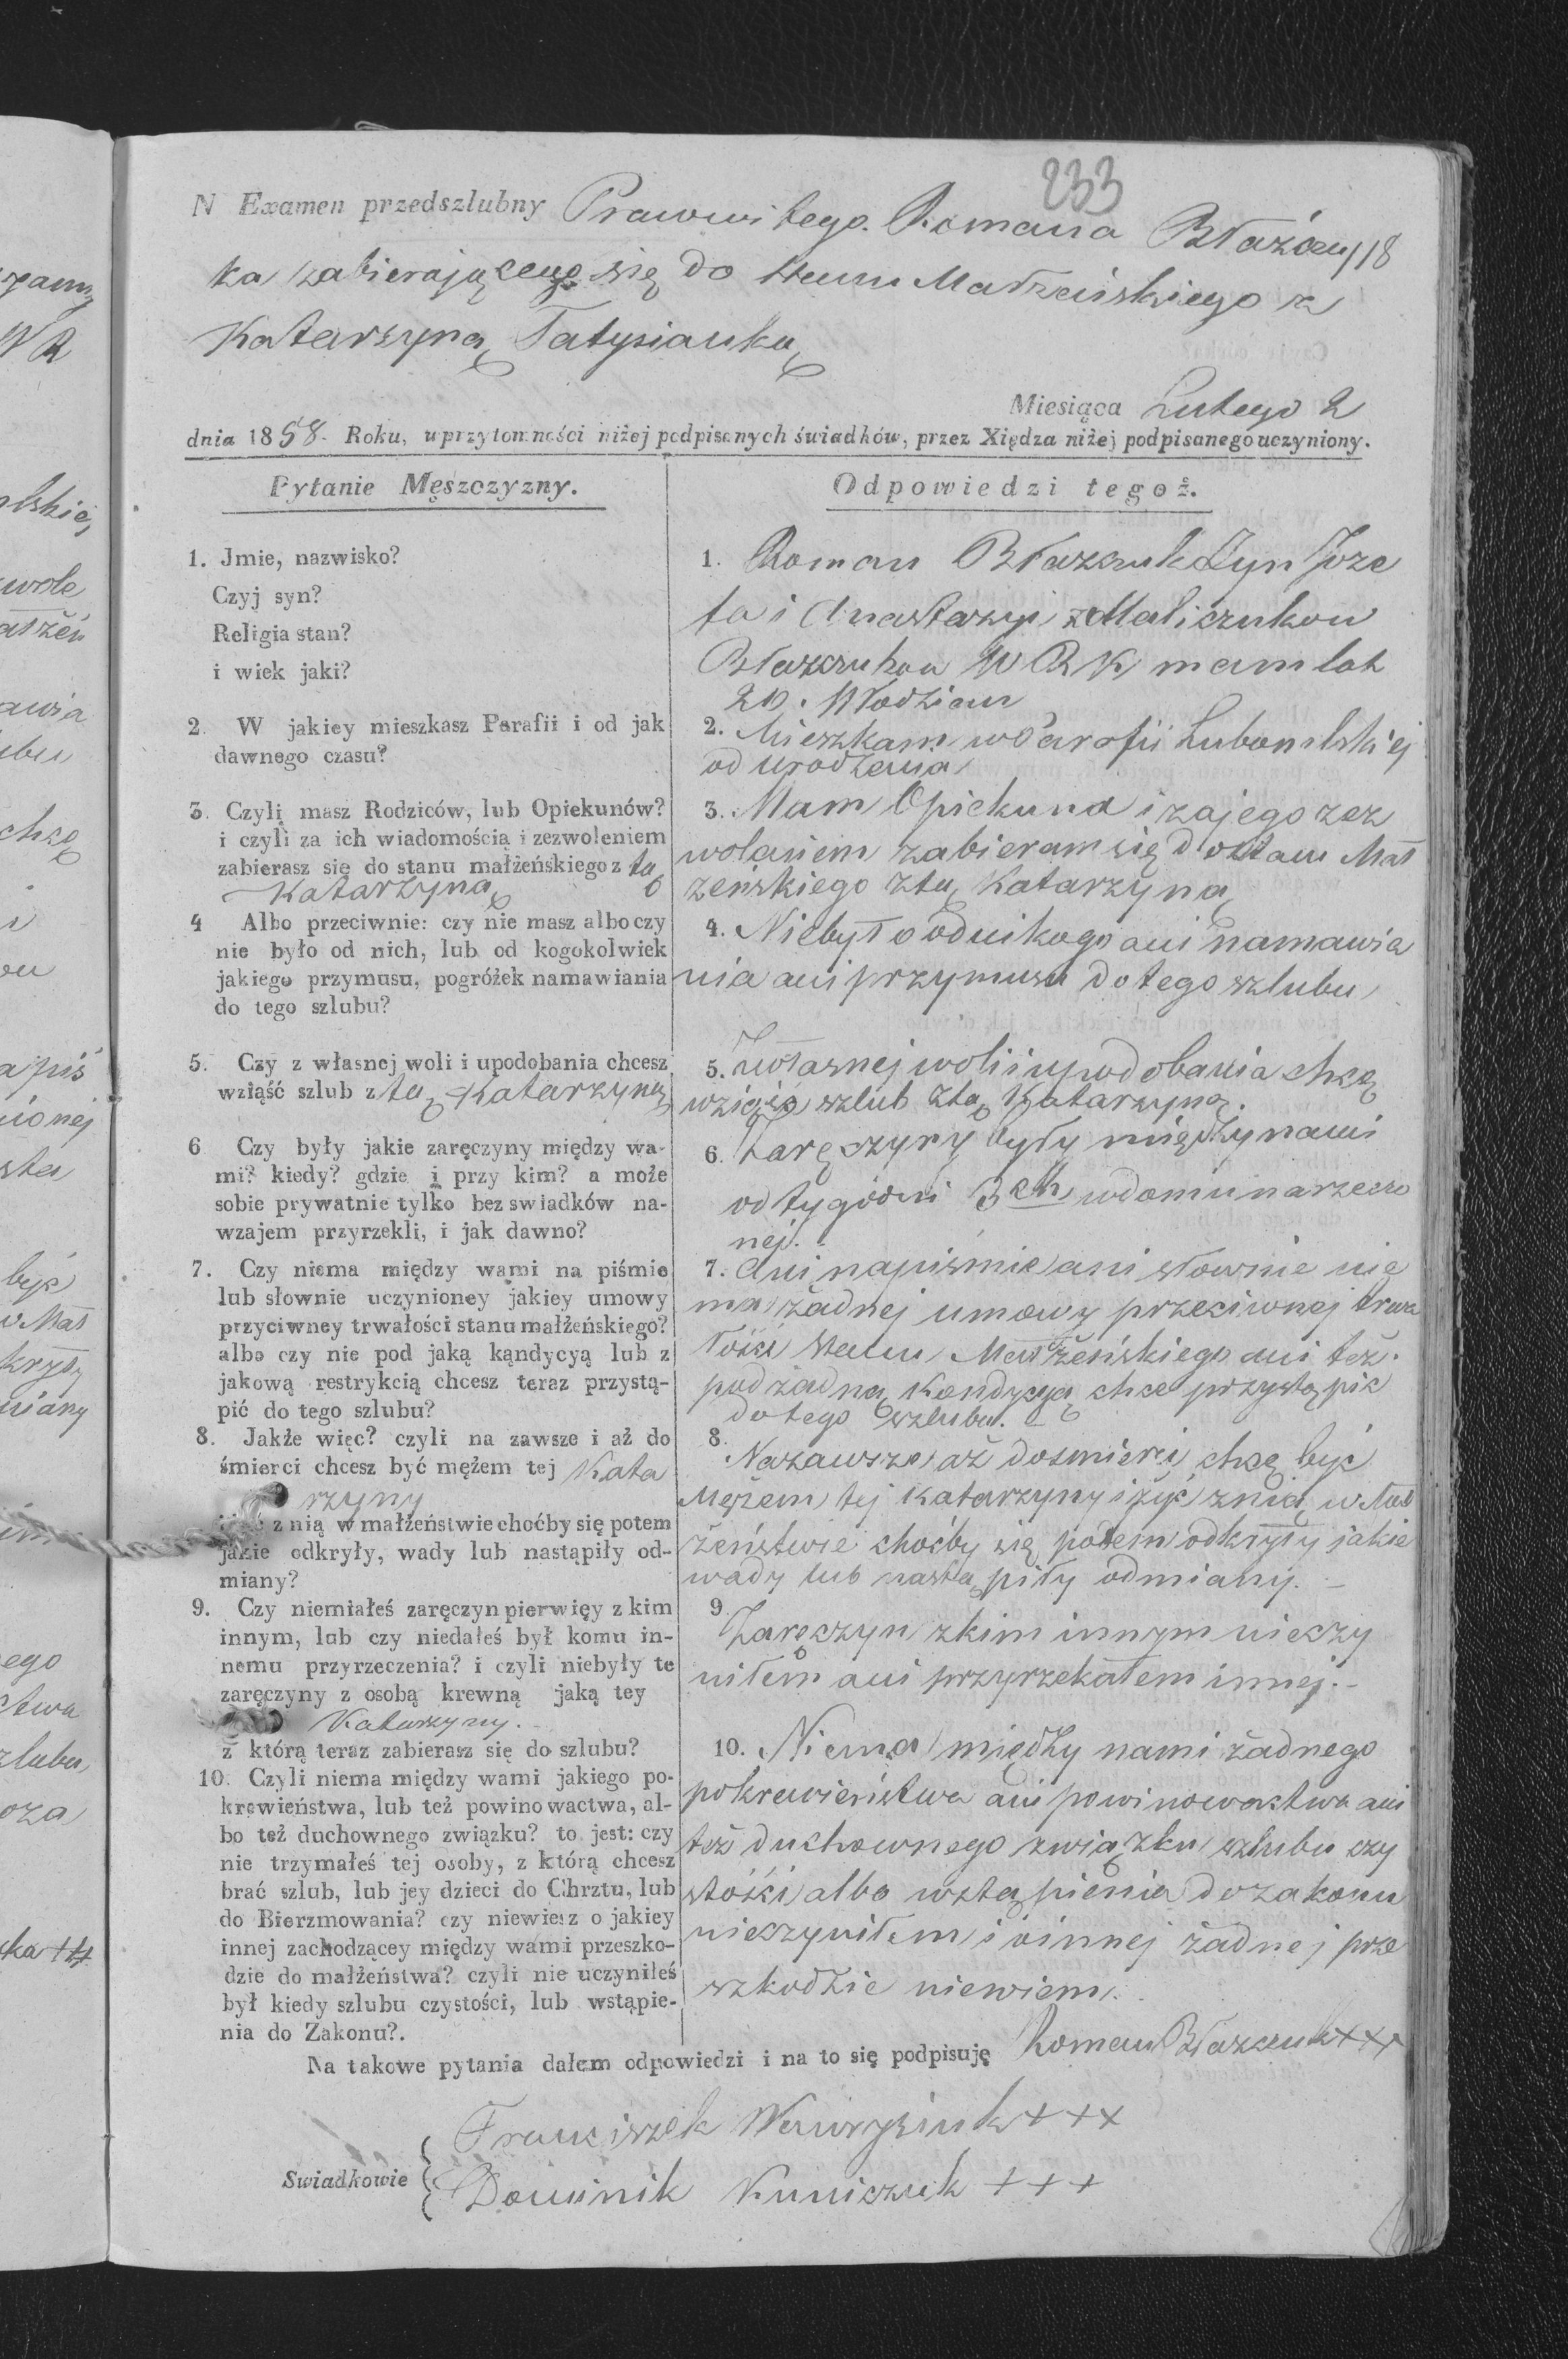 233
N Examen przedszlubny Prawowitego Romana Błażczu 118
ka zabierającego się do stanu Małżeńskiego z
Katarzyną Tatysianką
Miesiąca Lutego 2
dnia 1858. Roku, uprzytomności niżej podpisanych świadków, przez Xiędza niżej podpisanego uczyniony.
Pytanie Męszczyzny.
1. Jmie, nazwisko?
Czyj syn?
Religia stan?
i wiek jaki?
2. W jakiey mieszkasz Parafii i od jak
dawnego czasu?
3. Czyli masz Rodziców, lub Opiekunów?
i czyli za ich wiadomością i zezwoleniem
zabierasz się do stanu małżeńskiego z tą
Katarzyną
4 Albo przeciwnie: czy nie masz albo czy
nie było od nich, lub od kogokolwiek
jakiego przymusu, pogróżek namawiania
do tego szlubu?
5. Czy z własnej woli i upodobania chcesz
wziąść szlub z tą Katarzyną
6 Czy były jakie zaręczyny między wa-
mi? kiedy? gdzie i przy kim? a może
sobie prywatnie tylko bez swiadków na-
wzajem przyrzekli, i jak dawno?
7. Czy niema między wami na piśmie
lub słownie uczynioney jakiey umowy
przyciwney trwałości stanu małżeńskiego?
albo czy nie pod jaką kąndycyą lub z
jakową restrykcią chcesz teraz przystą-
pić do tego szlubu?
8. Jakże więc? czyli na zawsze i aż do
śmierci chcesz być mężem tej Kata
rzyny
z nią w małżeństwie choćby się potem
jakie odkryły, wady lub nastąpiły od-
miany?
9. Czy niemiałeś zaręczyn pierwięy z kim
innym, lub czy niedałeś był komu in-
nemu przyrzeczenia? i czyli niebyły te
zaręczyny z osobą krewną jaką tey
Katarzyny.
z którą teraz zabierasz się do szlubu?
10. Czyli niema między wami jakiego po-
krewieństwa, lub też powinowactwa, al-
bo też duchownego związku? to jest: czy
nie trzymałeś tej osoby, z którą chcesz
brać szlub, lub jey dzieci do Chrztu, lub
do Bierzmowania? czy niewiesz o jakiey
innej zachodzącey między wami przeszko-
dzie do małżeństwa? czyli nie uczyniłeś
był kiedy szlubu czystości, lub wstąpie-
nia do Zakonu?.
Odpowiedzi tegoż.
1. Roman Błazczuk Syn Joze
fa i Anastazyi z Maliczukow
Błazczukow W R K mam lat
20. Młodzian
2. Mieszkam w Parafii Lubomlskiej
od urodzenia
3. Mam Opiekuna i za jego zez
wolaniem zabieram się do stanu Mał
żeńskiego z tą Katarzyną
4. Niebyło od nikogo ani namawia
nia ani przymusu do tego szlubu
5. Zwłasnej woli i upodobania chcę
wziąść szlub z tą Katarzyną.
6. Zaręczyny były między nami
od tygodni 3ch w domu narzeczo
nej.
7. Ani na piśmie ani słownie nie
ma żadnej umowy przeciwnej trwa
łości stanu Małżeńskiego ani też
pod żadną kondycyą chce przystąpić
do tego szlubu.
8. Nazawsze aż do smierci chcę być
Mężem tej Katarzyny i żyć z nią w Mał
żeństwie choćby się potem odkryły jakie
wady lub nastąpiły odmiany. -
9. Zaręczyn z kim innym nieczy
niłem ani przyrzekałem innej. -
10. Niema między nami żadnego
pokrewieństwa ani powinowactwa ani
też duchownego związku szlubu czy
stości albo wstąpienia do zakonu
nieczyniłem i o innej żadnej prze
szkodzie niewiem.
Na takowe pytania dałem odpowiedzi i na to się podpisuję Roman Błazczuk +++
Swiadkowie
Franciszek Wawrysiuk +++
Dominik Kuniczuk +++